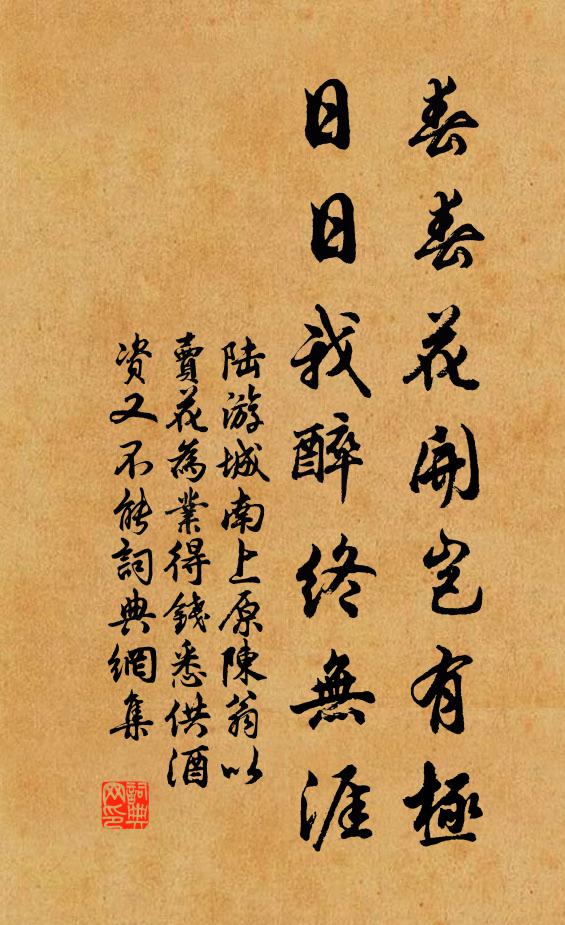 春春花開豈有極
日日我醉終無涯
陸游城南上原陳翁以
賣花為業得錢悉供酒
资又不能詞典網集
詞典
网印